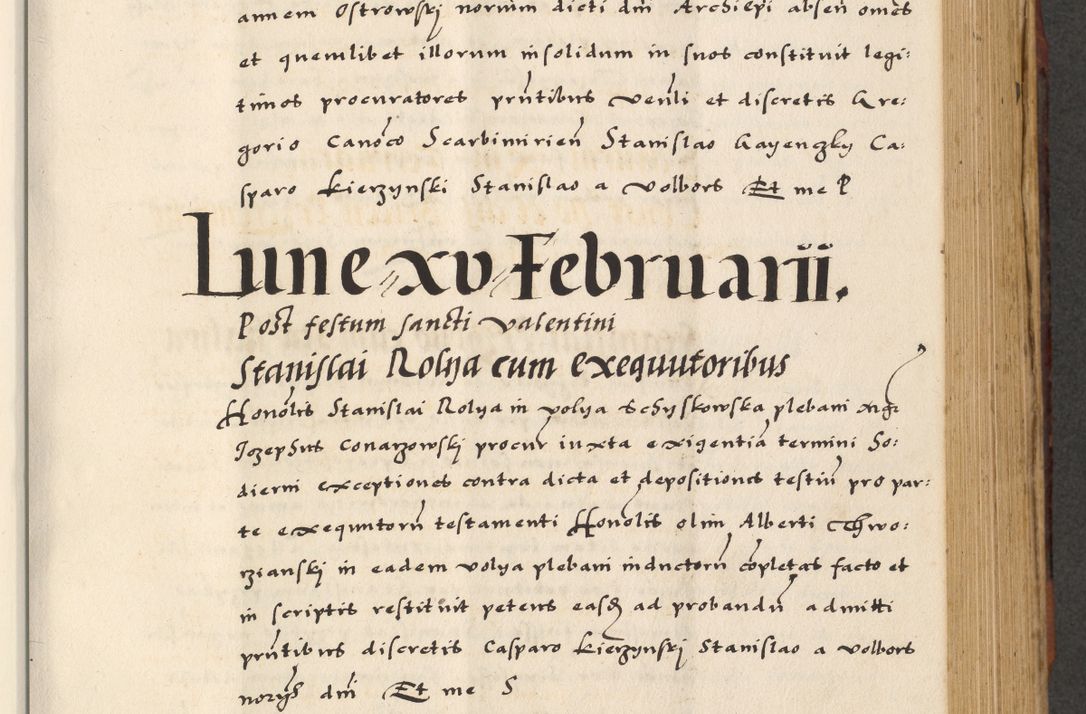 annem Ostrowskj norium dicti dnī Archiepi absen̄ omēs
et quemlibet illorum insolidum in suos constituit legi:
timos procuratores pn̄tibus ven̄li et discretis Gre:
gorio Canoco Scarbimirien̄ Stanislao Gayenczky Ca:
sparo Kierzynski Stanislao a Volbors Et me P
Lune xv Februarii.
Post festum sancti Valentini
Stanislai Rolya cum exequutoribus
Honolis Stanislai Rolya in Volya Schyskowska plebani
Jozephus Conarzowskj procur iuxta exigentiā termini Ho:
dierni exceptiones contra dicta et depositiones testiū pro par:
te exequutorū testamenti Honolis olim Alberti Thwo:
rzianskj in eadem Volya plebani inductorū cōpletas facto et
in scriptis restituit petens easd ad probandū admitti
pn̄tibus discretis Casparo Kierzynskj Stanislao a Volbors
norijs dnī Et me S